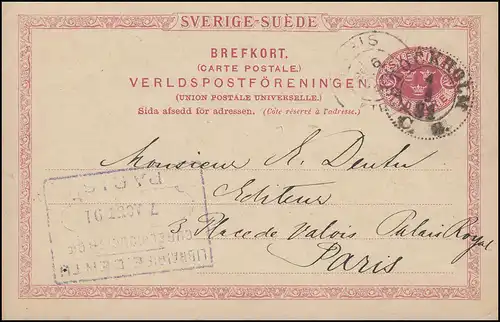 SVERIGE-SUÈDE
BREFKORT.
(CARTE POSTALE.)
VERLDSPOSTFÖRENINGEN
(UNION POSTALE UNIVERSELLE.)
Sida afsedd för adressen. (Côté réservé à l'adresse.)
STOCKHOLM
Monsieur E. Dentu
Editeur
3 Place de Valois Palais Royal
Paris
LIBRAIRIE E. DENTU
7 AOUT 91
PARIS